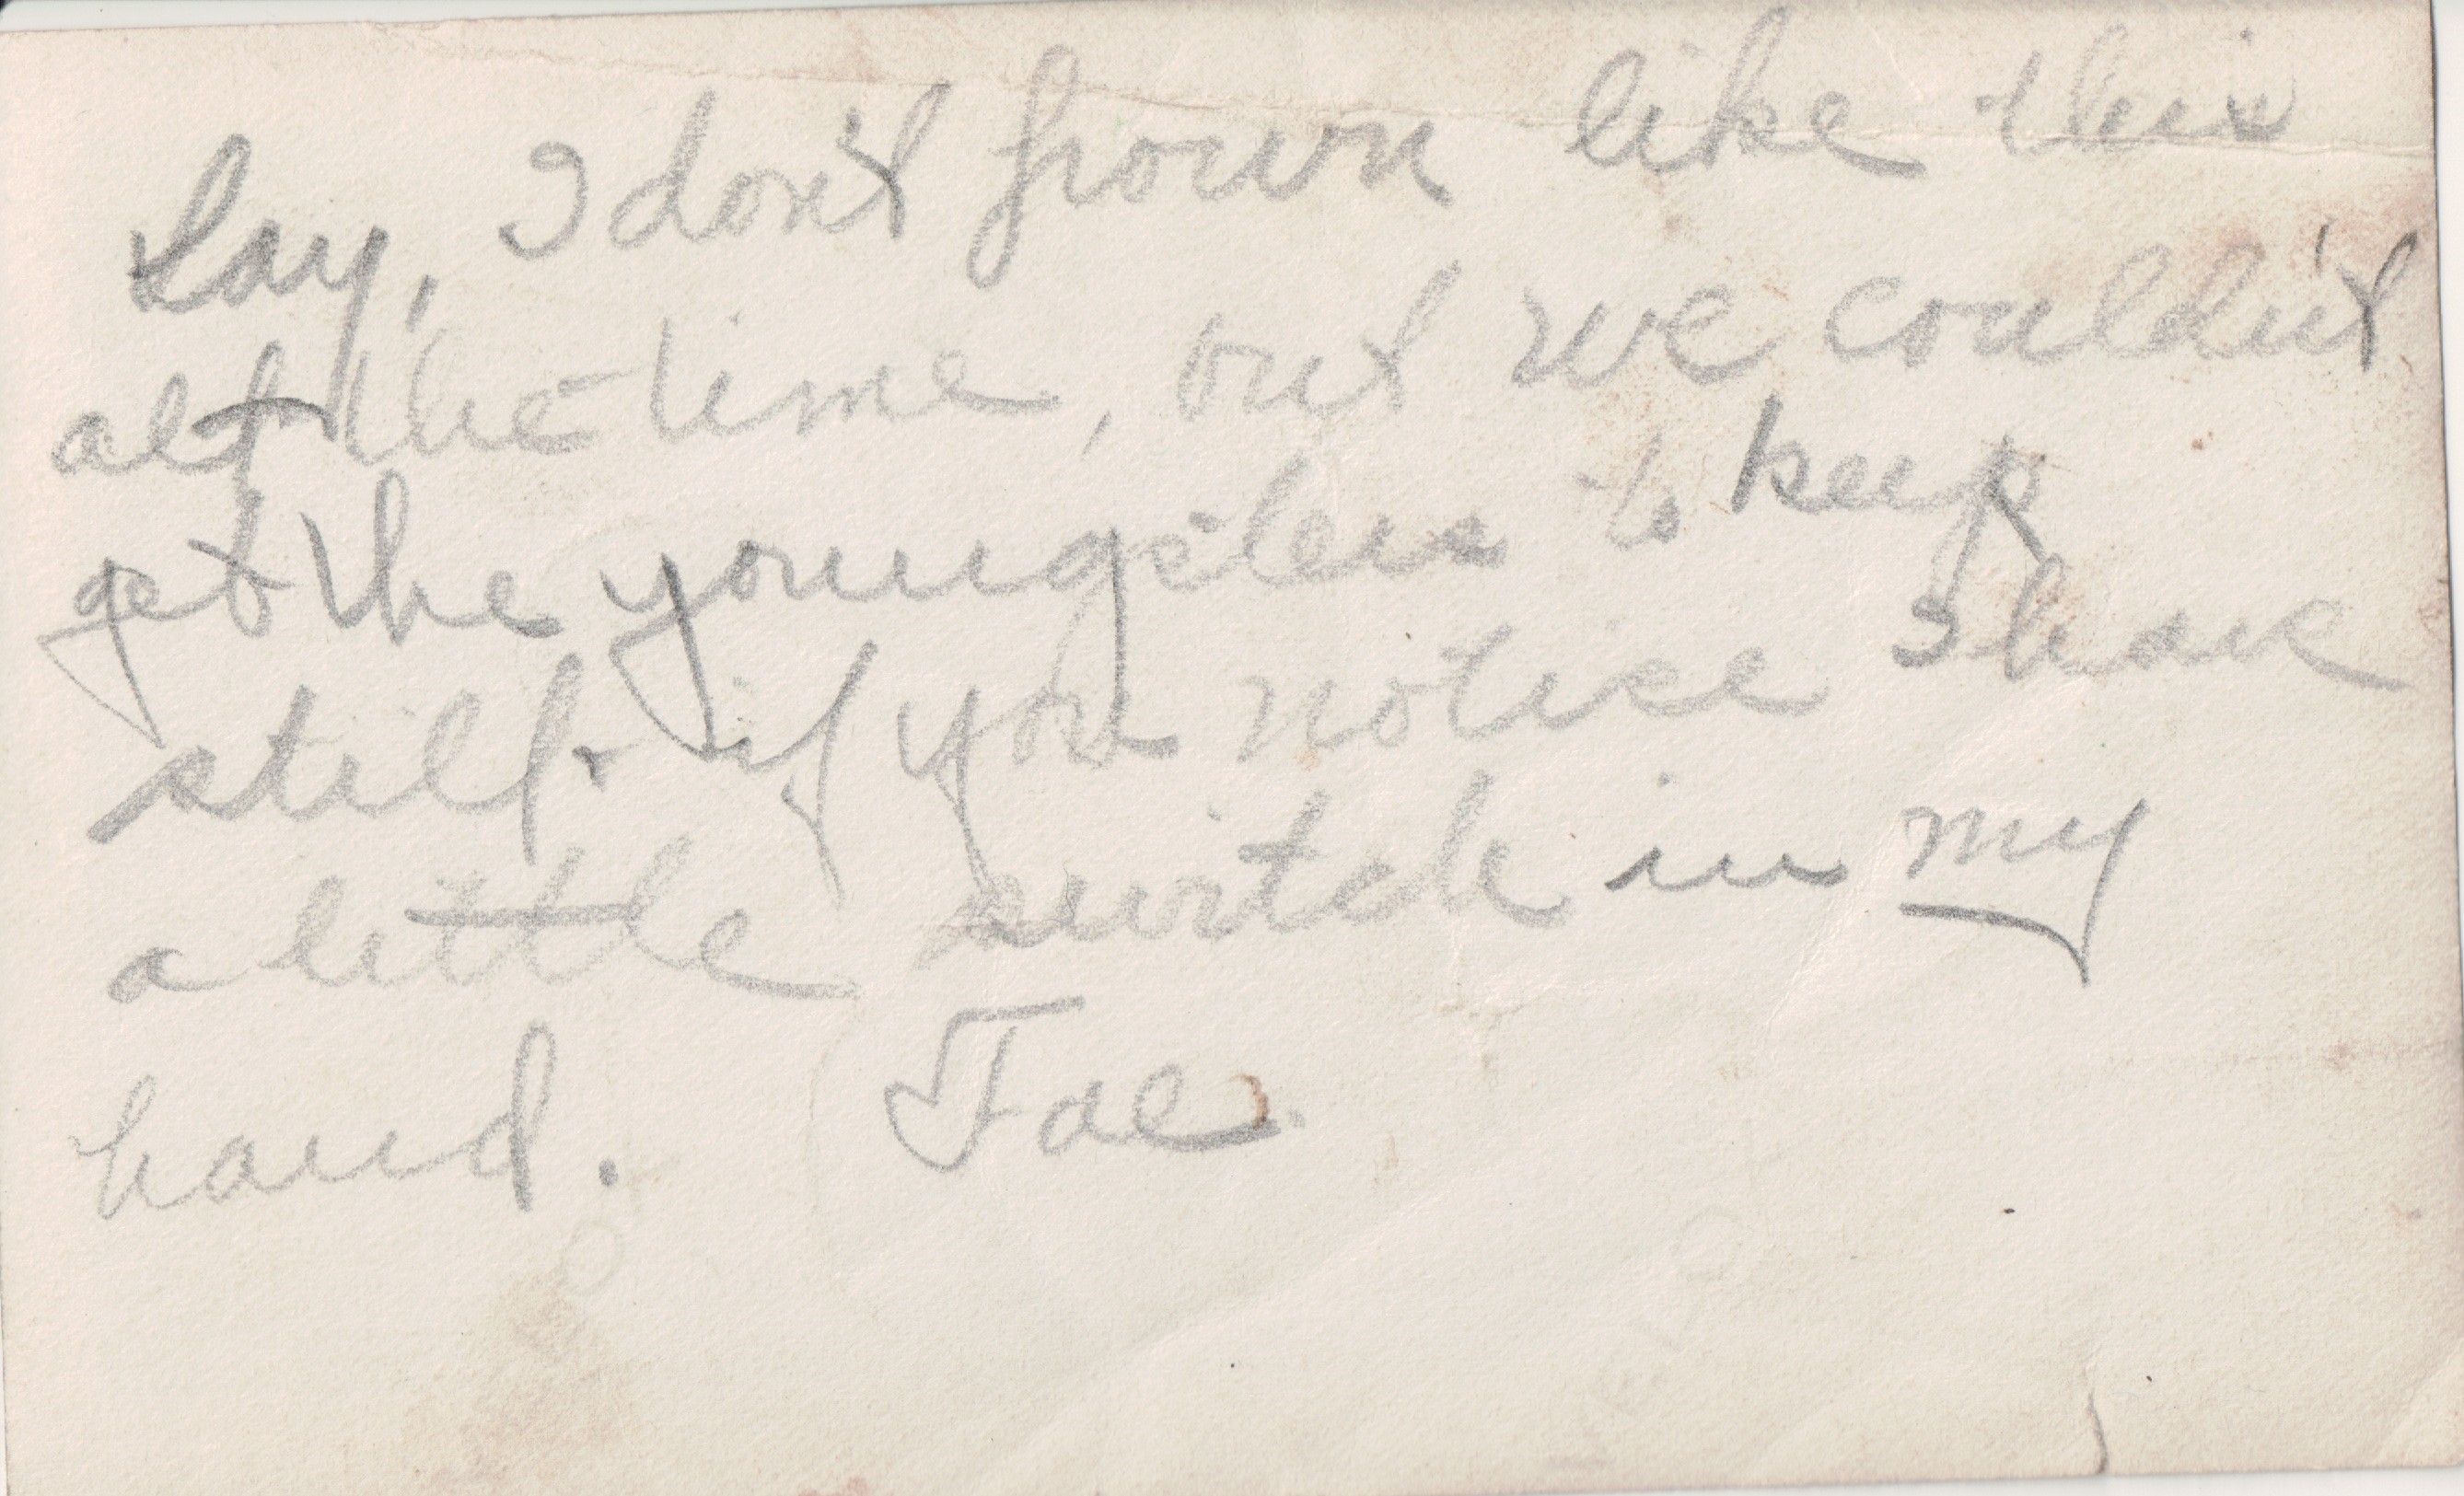 Say, I don't frown like this
all the time, but we couldn't
get the youngsters to keep
still & if you notice I have
a little switch in my
hand. Jae.